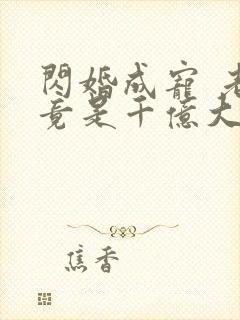 閃婚成寵 老
竟是千億大
焦香